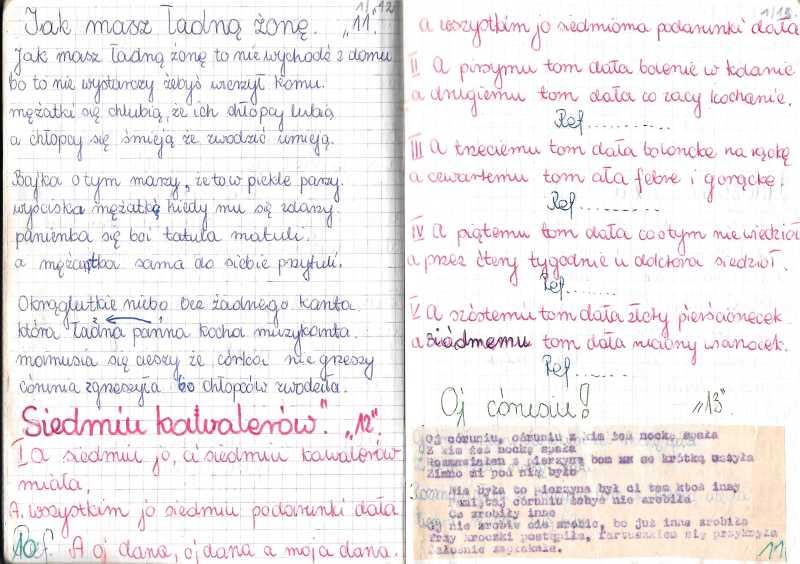 1/12
Jak masz ładną żonę. "11".
Jak masz ładną żonę to nie wychodź z domu
bo to nie wystarczy żebyś wierzył komu.
mężatki się chlubią, że ich chłopcy lubią
a chłopcy się śmieją że zwodzić umieją.
Bajka o tym marzy, że to w piekle parzy.
wyściska mężatkę kiedy mu się zdarzy.
panienka się boi tatula matuli.
a mężatka sama do siebie przytuli.
Okrąglutkie niebo bez żadnego kanta
która ładna panna kocha muzykanta.
mamusia się cieszy że córka nie grzeszy
córunia zgrzeszyła bo chłopców zwodziła.
"Siedmiu kawalerów". "12".
I A siedmiu jo, ci siedmiu kawalerów
miała,
A. wszystkim jo siedmiu podarunki dała
Ref. A oj dana, oj dana a moja dana.
10
1/13
a wszystkim jo siedmioma podarunki dała
II A pirszymu tom dała bolenie w kolanie
a drugiemu tom dała co racy kochanie.
Ref..........
III A trzeciemu tom dała bolonckę na rzckę
a cewartemu tom ała febre i gorąckę.
Ref..........
IV A piątemu tom dała co o tym nie wiedzioł
a przez śtery tygodnie u doktora siedzioł.
Ref.......
V A szóstemu tom dała złoty pierścionecek
a siódmemu tom dała ruciany wianocek.
Ref.......
Oj córuniu! "13".
Oj córuniu, córuniu z kim żeś nockę spała
Z kim żeś nockę spała
pierzyną bom se krótką uszyła
Zimno mi pod nią było
Nie była to pierzyna był ci tam ktoś inny
Pamiętaj córuniu żebyś nie zrobiła
Co zrobiły inne
Oj nie zrobię nie zrobię, bo już inne zrobiła
Trzy kroczki postąpiła, fartuszkiem się przykryła
Żałośnie zapłakała.
11